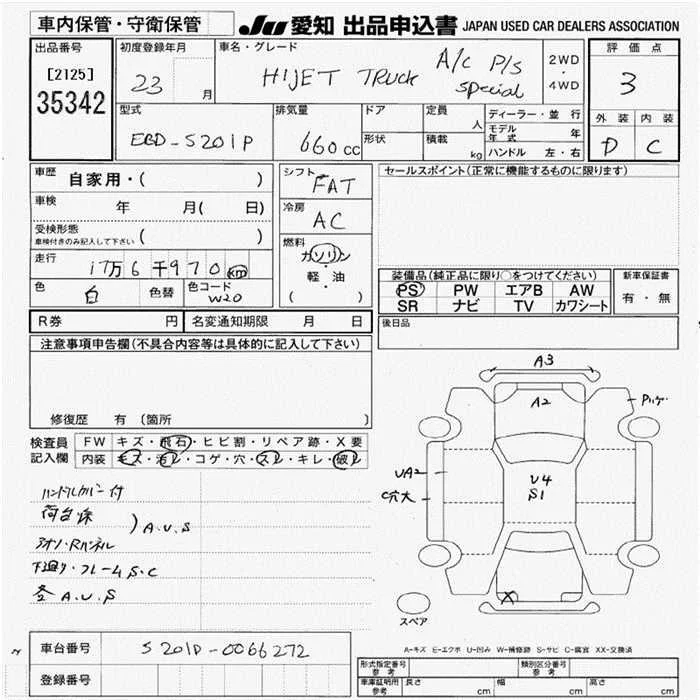 車内保管・守衛保管
JU 愛知 出品申込書 JAPAN USED CAR DEALERS ASSOCIATION
出品番号
[2125]
35342
初度登録年月
23 月
車名・グレード
HIJET TRUCK A/C P/S Special
2WD
・
4WD
評価点
3
外装 内装
D C
型式
EBD-S201P
排気量
660cc
ドア
形状
定員
人
積載
kg
ディーラー・並行
モデル年式 年
ハンドル 左・右
車歴
自家用・( )
車検
年 月( 日)
受検形態
車検付きのみ記入して下さい ( )
走行
17万6千970km
色
白
色替
色コード
W20
シフト
FAT
冷房
AC
燃料
ガソリン
・
軽・油
・
( )
セールスポイント(正常に機能するものに限ります)
装備品(純正品に限り○をつけてください)
PS PW エアB AW
SR ナビ TV カワシート
新車保証書
有・無
R券 円
名変通知期限 月 日
後日品
注意事項申告欄(不具合内容等は具体的に記入して下さい)
修復歴 有 (箇所 )
検査員
記入欄
FW キズ・飛石・ヒビ割・リペア跡・X要
内装 キズ・汚レ・コゲ・穴・スレ・キレ・破レ
ハンドルカバー付
荷台床 ) A.U.S
アオリ・Rパネル
下廻り・フレームS.C
各 A.U.S
A3
A2
UA2
C穴大
U4
S1
X
スペア
A-キズ E-エクボ U-凹み W-補修跡 S-サビ C-腐食 XX-交換済
車台番号
S201P-0066272
登録番号
形式指定番号
参考
類別区分番号
参考
車庫証明用
参考
長さ cm 幅 cm 高さ cm